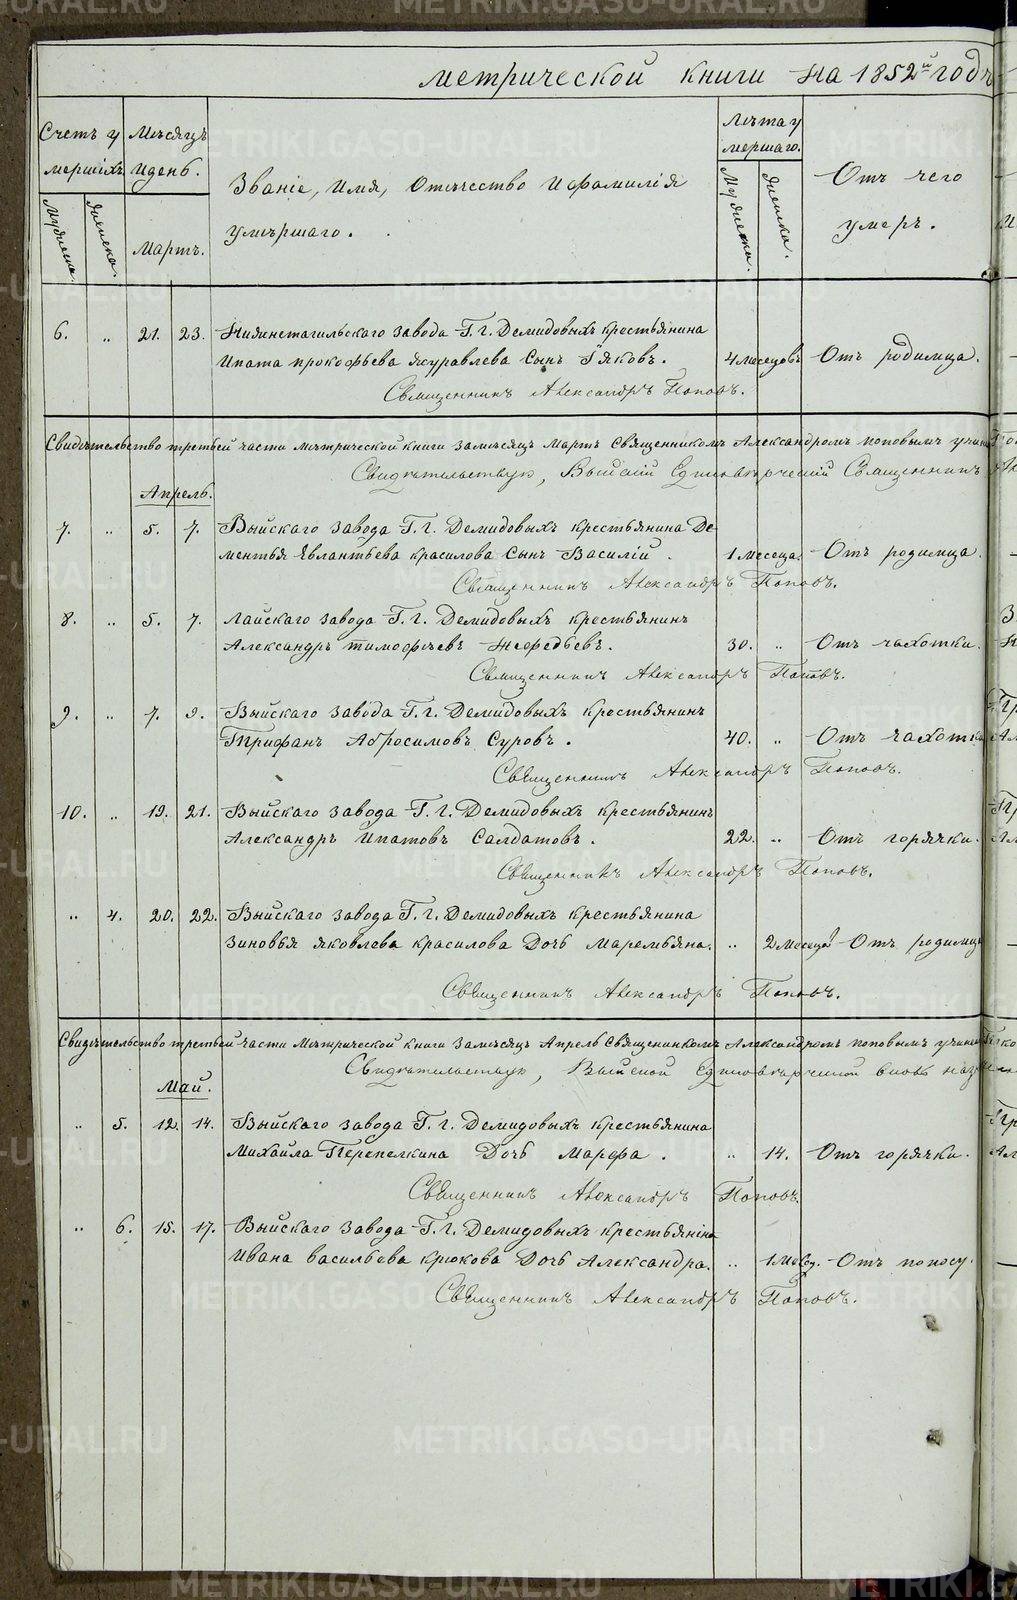 метрической книги на 1852й годъ
Счетъ у
мершихъ
Мужеска.
Женска.
Мѣсяцъ
и день.
Мартъ.
Званіе, имя, отечество и фамилія
умѣршаго.
Лѣта у
мершаго.
Мужеска.
Женска.
Отъ чего
умеръ.
6. „ 21. 23. Нижнетагильскаго завода Г. г. Демидовыхъ крестьянина
Ипата прокофьева журавлева Сынъ Іяковъ. 4 месецовъ Отъ родимца.
Священникъ Александръ Поповъ.
Свидѣтельство третьей части метрической книги за мѣсяцъ Мартъ Священникомъ Александромъ поповымъ
Свидѣтельствую, Выйскій Единовѣрческій Священникъ
Апрель.
7. „ 5. 7. Выйскаго завода Г. г. Демидовыхъ крестьянина Де
ментья Евлантьева красилова Сынъ Василій. 1 месеца. Отъ родимца.
Священникъ Александръ Поповъ.
8. „ 5. 7. Лайскаго завода Г. г. Демидовыхъ крестьянинъ
Александръ тимофѣевъ 30. „ Отъ чахотки.
Священникъ Александръ Поповъ.
9. „ 7. 9. Выйскаго завода Г. г. Демидовыхъ крестьянинъ
Трифанъ Абросимовъ Суровъ. 40. „ Отъ чахотки
Священникъ Александръ Поповъ.
10. „ 19. 21. Выйскаго завода Г. г. Демидовыхъ крестьянинъ
Александръ Ипатовъ Салдатовъ. 22. „ Отъ горячки.
Священникъ Александръ Поповъ.
„ 4. 20. 22. Выйскаго завода Г. г. Демидовыхъ крестьянина
Зиновья яковлева красилова Дочь Маремьяна. „ 2 месеца Отъ родимца
Священникъ Александръ Поповъ.
Свидѣтельство третьей части Метрической книги за мѣсяцъ Апрель Священникомъ Александромъ поповымъ
Свидѣтельствую, Выйской Единовѣрческой вновь
Май.
„ 5. 12. 14. Выйскаго завода Г. г. Демидовыхъ крестьянина
Михайла Перепелкина Дочь Марфа. „ 14. Отъ горячки.
Священникъ Александръ Поповъ.
„ 6. 15. 17. Выйскаго завода Г. г. Демидовыхъ крестьянина
Ивана васильева крюкова Дочь Александра. „ 1 месц. Отъ поносу.
Священникъ Александръ Поповъ.
METRIKI.GASO-URAL.RU